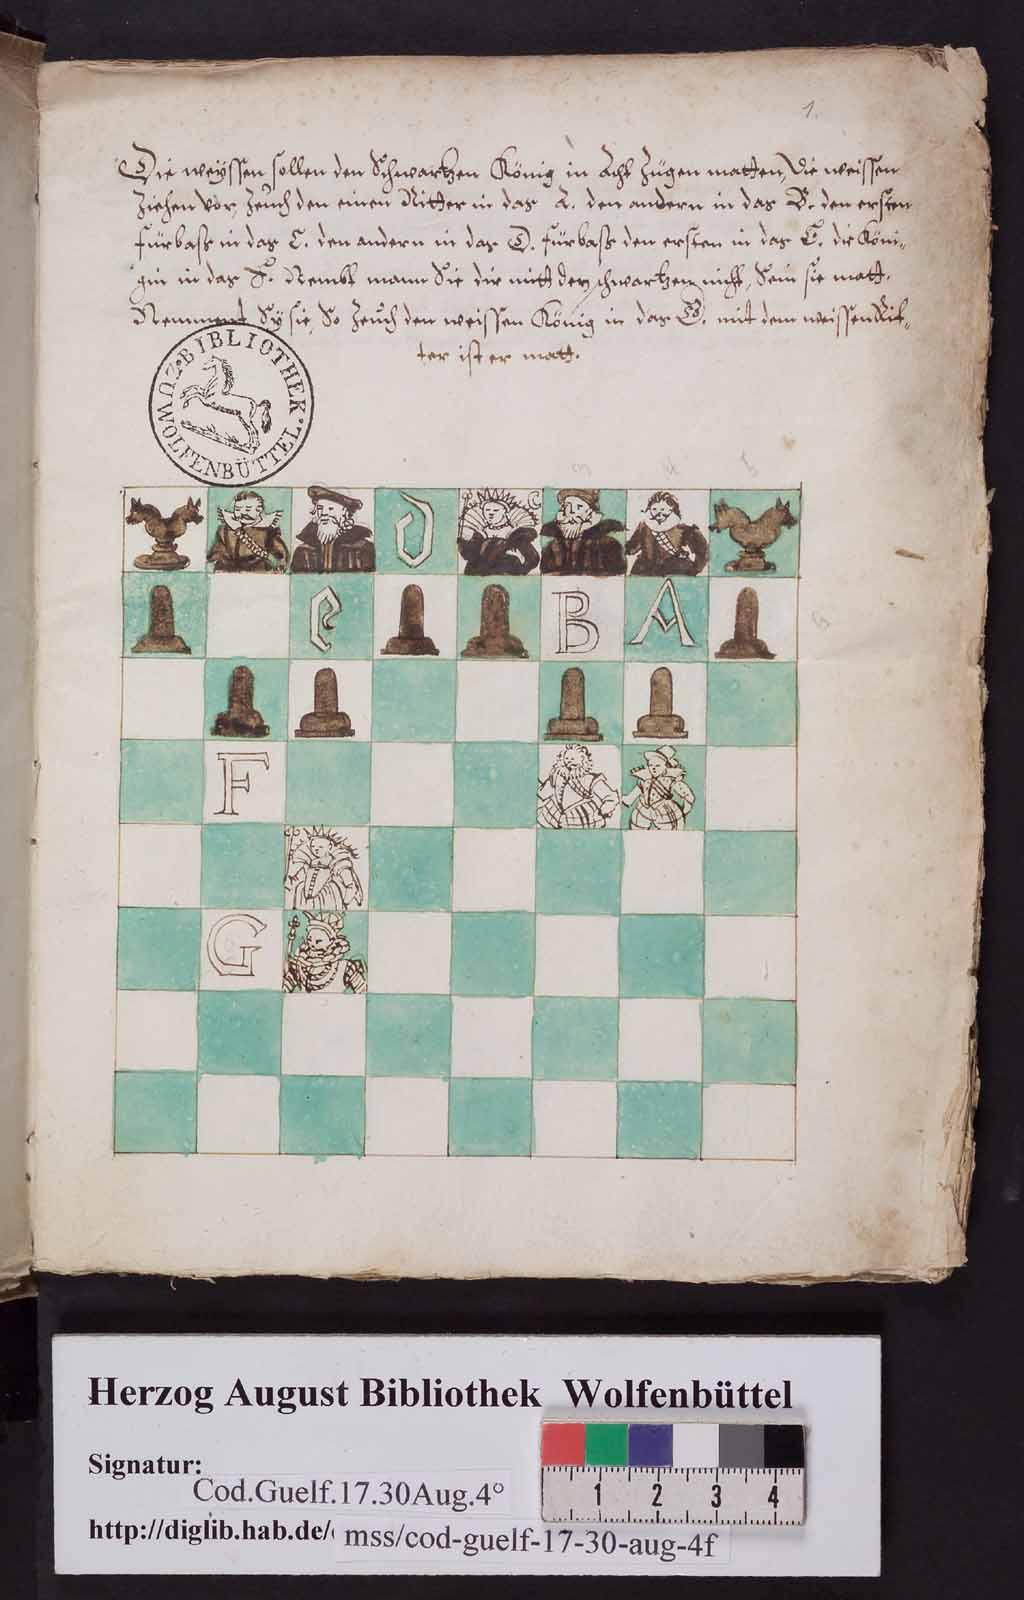 1.
Die weyssen sollen den Schwartzen König in Acht Zügen matten, Die weissen
Ziehen vor, Zeuch den einen Ritter in das A. den andern in das B. den ersten
fürbaß in das C. den andern in das D. fürbaß den ersten in das E. die Köni-
gin in das F. Nembt mann Sie dir mitt der schwartzen nicht, Sein sie matt.
Nemment Sy sie, So Zeuch den weissen König in das G. mit dem weissen Rit-
ter ist er matt.
BIBLIOTHEK · ZU WOLFENBÜTTEL ·
3 4 5
D
E B A
6
F
G
Herzog August Bibliothek Wolfenbüttel
Signatur:
Cod.Guelf.17.30Aug.4°
http://diglib.hab.de/
mss/cod-guelf-17-30-aug-4f
1 2 3 4